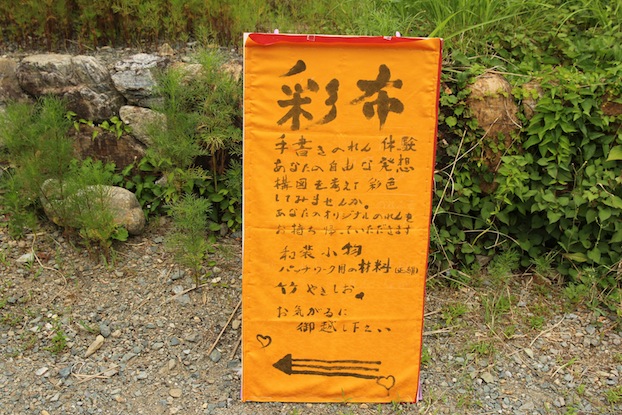 彩布
手書きのれん 体験
あなたの自由な発想
構図を考えて 彩色
してみませんか。
あなたのオリジナルのれんを
お持ち帰っていただきます
和装小物
パッチワーク用の材料
竹やきしお。
お気がるに
御越し下さい